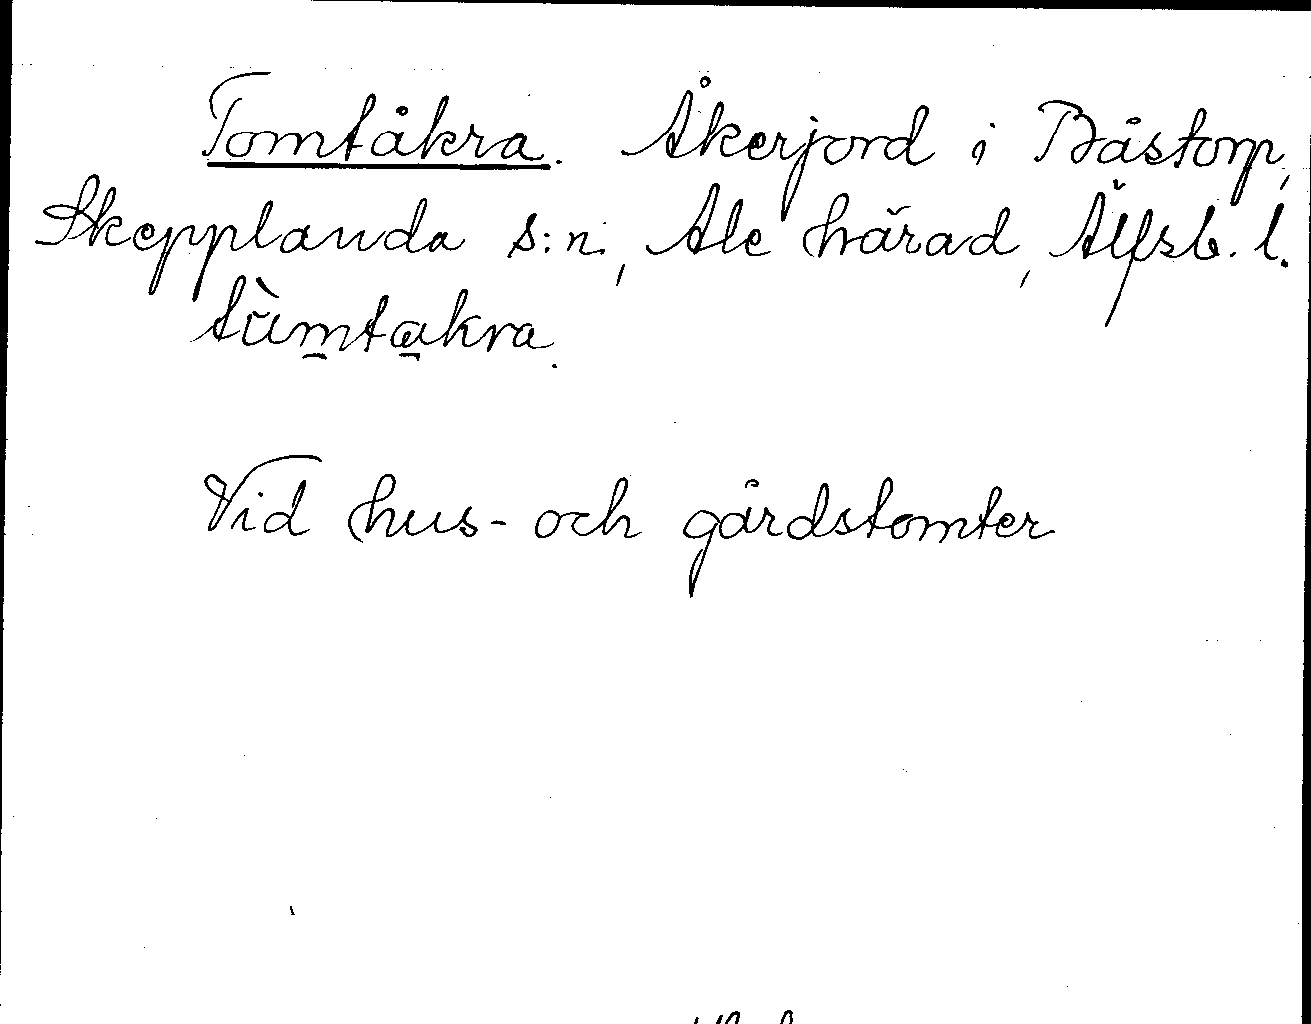 Tomtåkra. Åkerjord i Båstorp,
Skepplanda s:n, Ale härad, Älfsb. l.
tùmtakra.
Vid hus- och gårdstomter